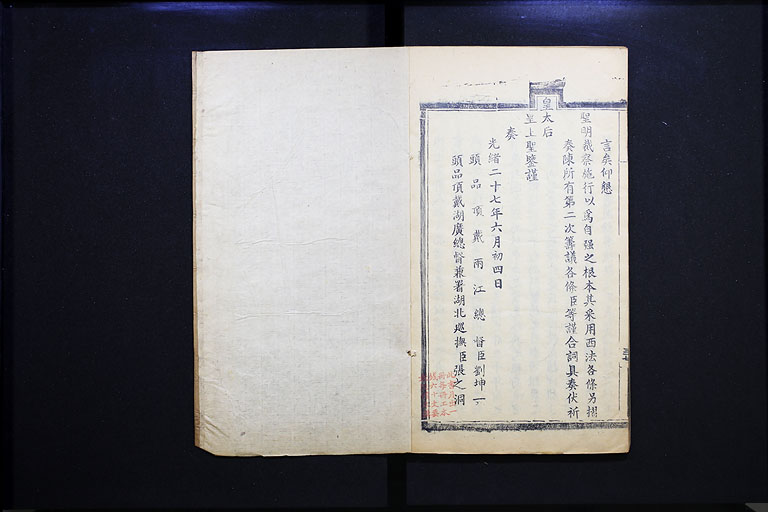 言矣仰懇
聖明裁察施行以為自强之根本其采用西法各條另摺
奏陳所有第二次籌議各條臣等謹合詞具奏伏祈
皇太后
皇上聖鑒謹
奏
光緒二十七年六月初四日
頭品頂戴兩江總督臣劉坤一
頭品頂戴湖廣總督兼署湖北巡撫臣張之洞